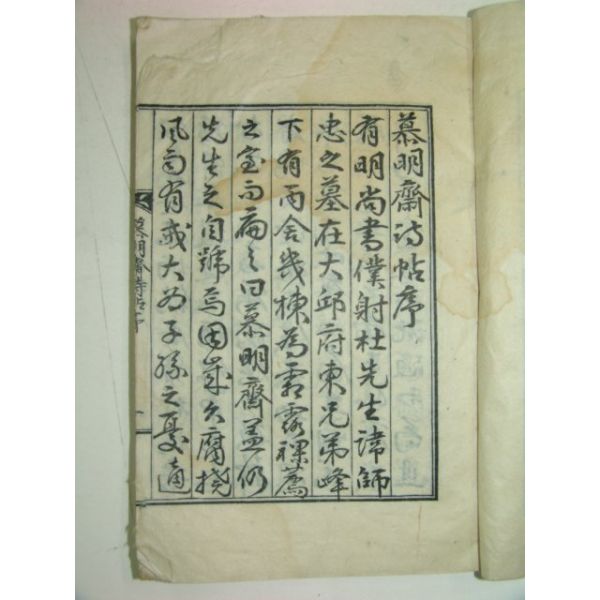 慕明齋詩帖序
有明尚書僕射杜先生諱師
忠之墓在大邱府東兄弟峰
下有丙舍幾棟為霜露祼薦
之室而扁之曰慕明齋盖仍
先生之自號焉因歲久腐撓
風雨有或大為子孫之憂適
慕明齋詩帖序 一